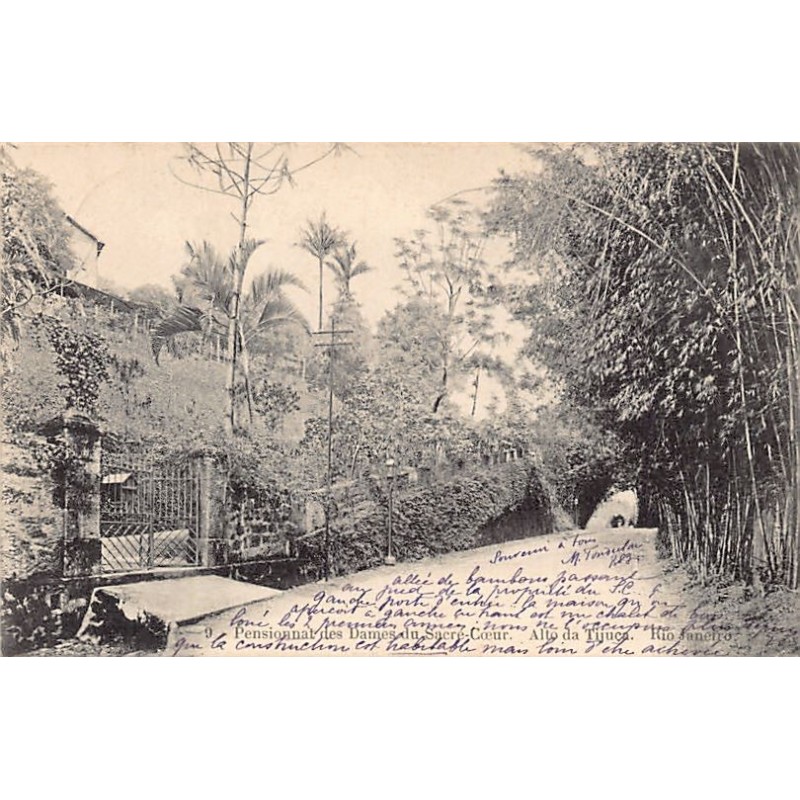 Souvenir à tous
M.
Allée de bambous passant
au pied de la propriété du S.C. à
gauche porte d'entrée. la maison qu'on
aperçoit à gauche en haut est un chalet
loué les 2 premières années; nous ne l'occupons plus
que la construction est habitable mais loin d'être achevée
9 Pensionnat des Dames du Sacré-Cœur. Alto da Tijuca. Rio Janeiro.